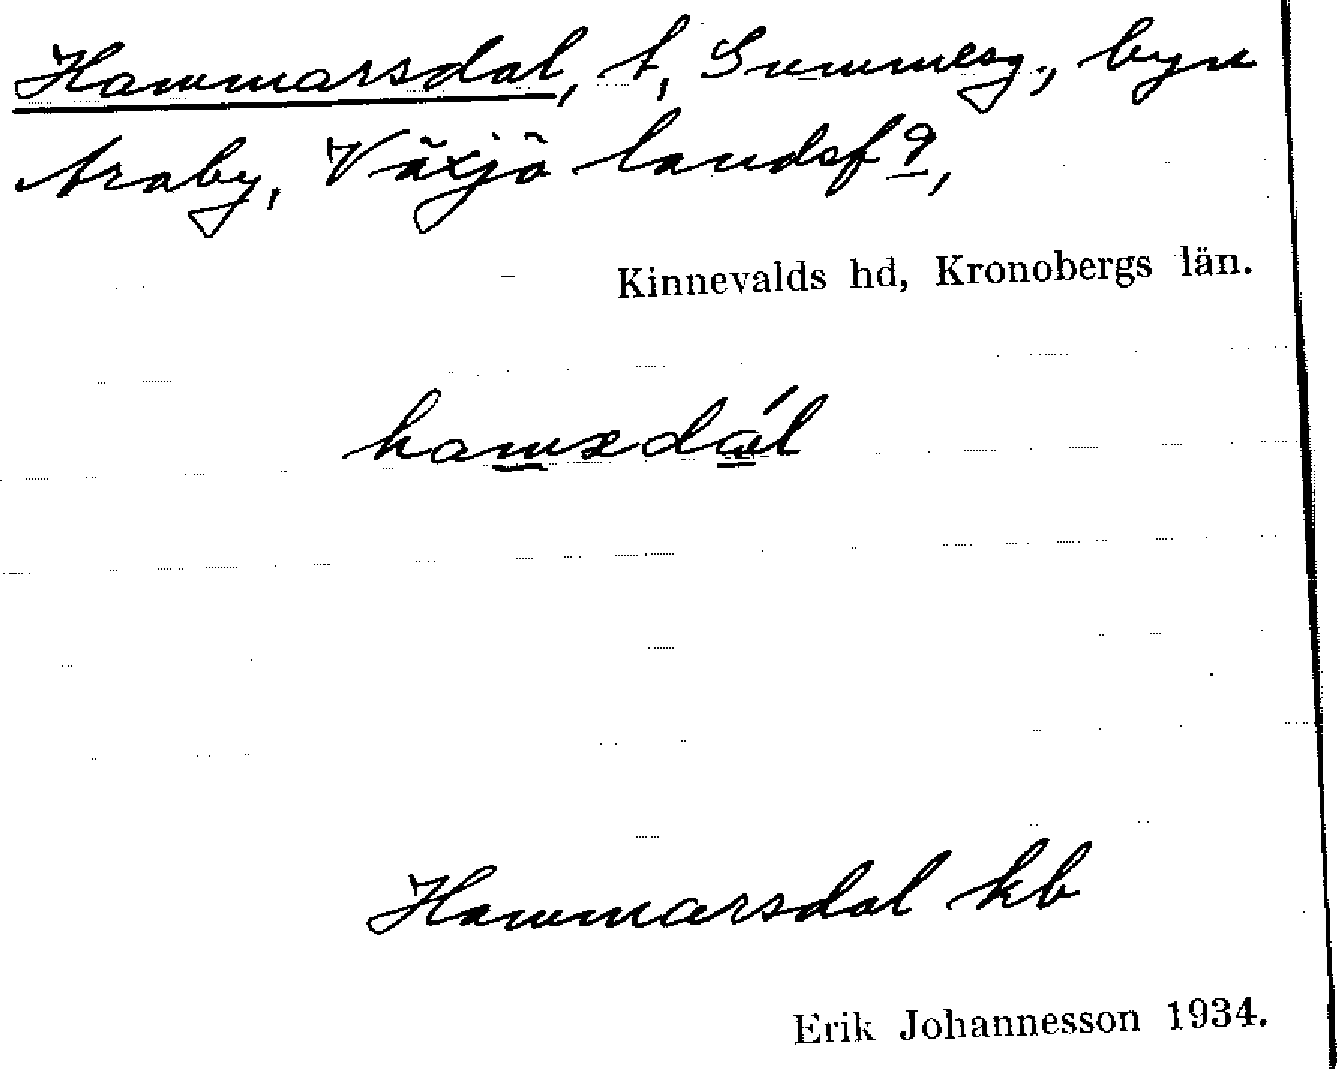 Hammarsdal, t, Summesg., byn
Araby, Växjö landsf ?,
Kinnevalds hd, Kronobergs län.
Hammarsdal kb
Erik Johannesson 1934.